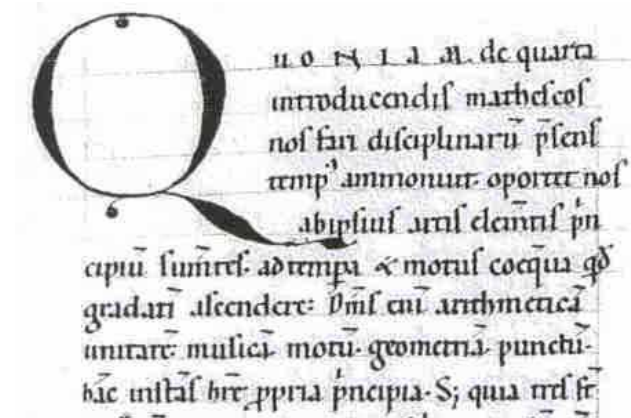 QUONIAM de quarta
introducendiſ matheſeoſ
noſ fari diſciplinarū p̄ſenſ
temp᾽ ammonuit. oportet noſ
ab ipſiuſ artiſ elem̄tiſ p̍n
cipiū ſum̄teſ. ad tempꝰa & motuſ
gradatī aſcendere: enī arithmeticā
unitatē. muſicā motū. geometriā punctū.
hāc inſtāſ hr̄e ꝓpria p̍ncipia. S; quia treſ ſt̄